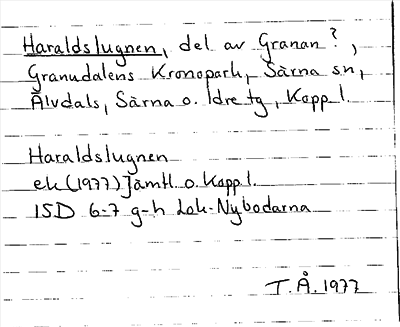 Haraldslugnen, del av Granan?,
Granudalens Kronopark, Särna sn,
Älvdals, Särna o. Idre tg, Kopp l.
Haraldslugnen
ek (1977) Jämtl. o. Kopp l.
15D 6-7 g-h Lok-Nybodarna
T.Å. 1977